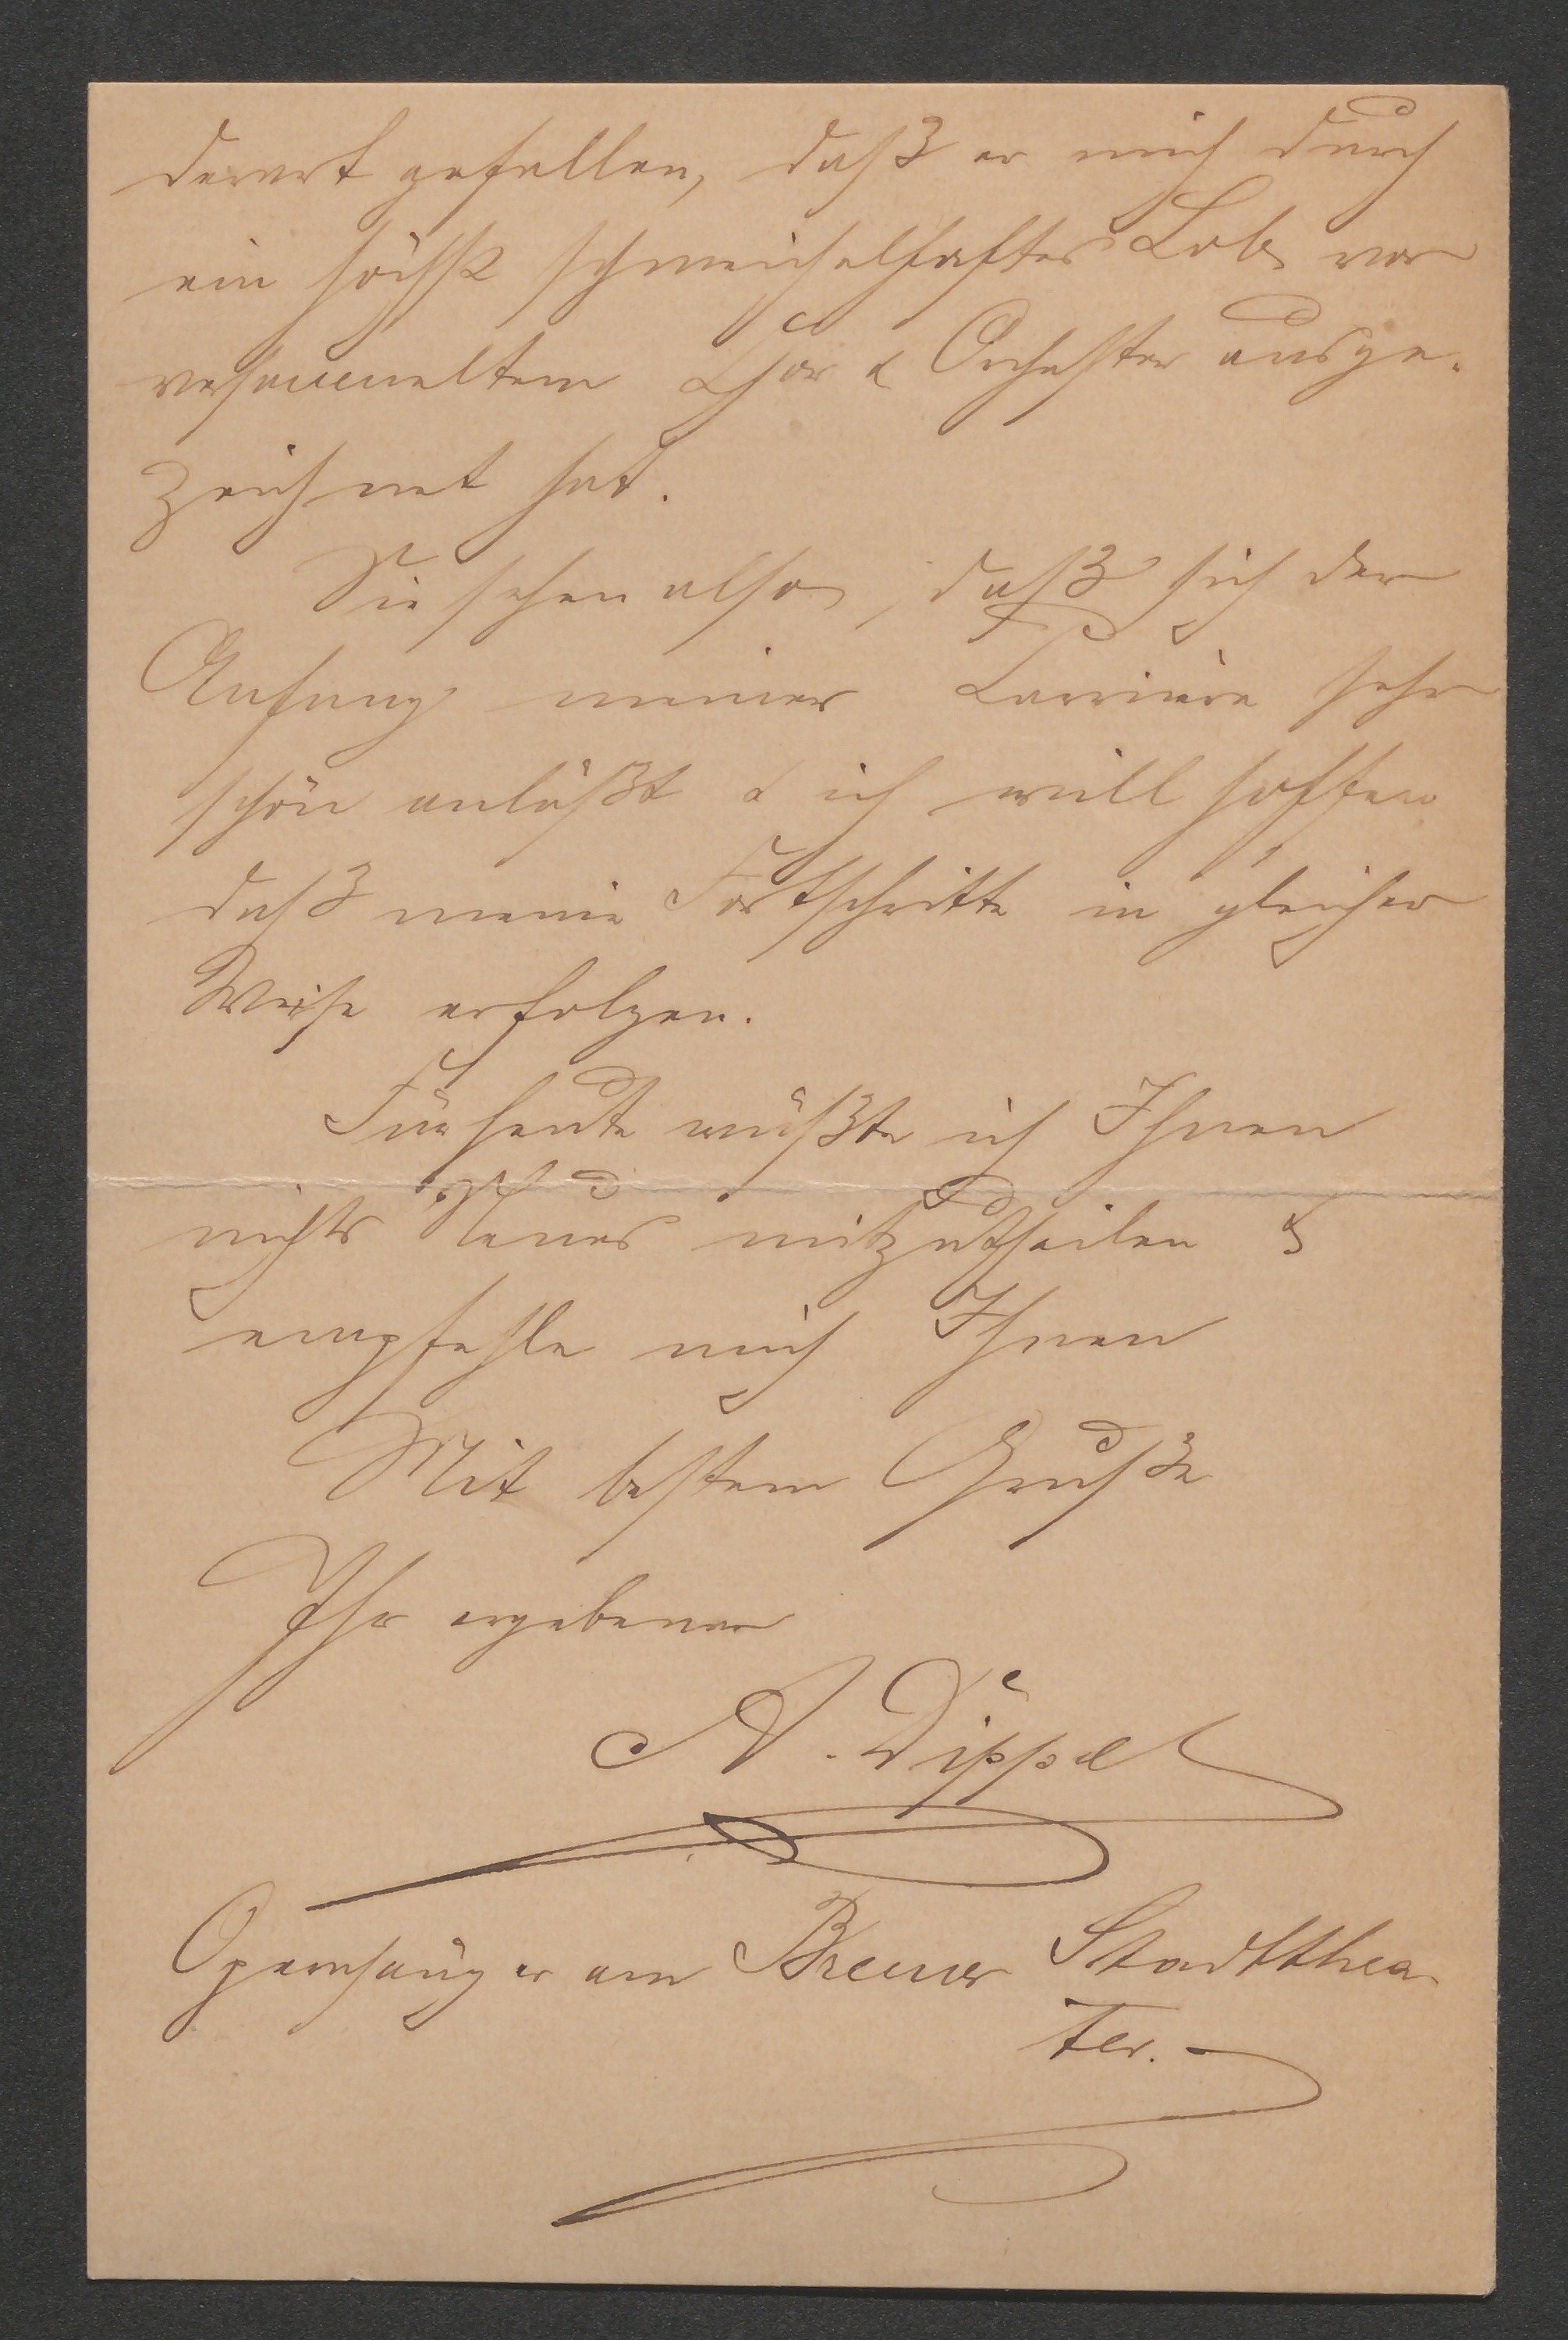 derart gefallen, daß er mich durch
ein höchst schmeichelhaftes Lob vor
versammeltem Chor & Orchester ausge-
zeichnet hat.
Sie sehen also, daß sich der
Anfang meiner Carrière sehr
schön anläßt & ich will hoffen
daß meine Fortschritte in gleicher
Weise erfolgen.
Für heute wüßte ich Ihnen
nichts Neues mitzutheilen &
empfehle mich Ihnen
Mit bestem Gruße
Ihr ergebener
A. Dippel
Opernsänger am Bremer Stadtthea-
ter.